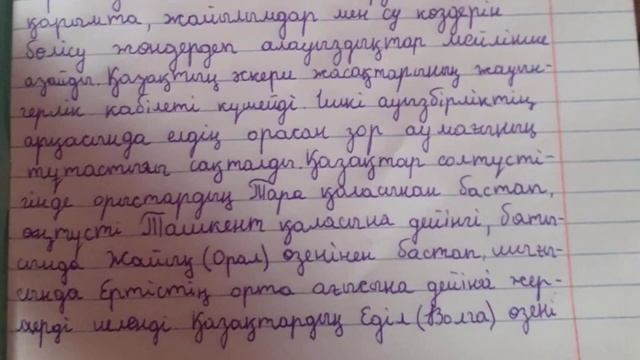 қарымта, жайылымдар мен су көздерін
бөлісу жөндерден алауыздықтар мейлінше
азайды. Қазақтың әскери жасақтарының жауын-
герлік қабілеті күшейді. Ішкі ауызбірліктің
арқасында елдің орасан зор аумағының
тұтастығы сақталды. Қазақтар солтүсті-
гінде орыстардың Тара қаласынан бастап,
оңтүсті Ташкент қаласына дейінгі, баты-
сында Жайық (Орал) өзенінен бастап, шығы-
сында Ертістің орта ағысына дейінгі жер-
лерді иеленді Қазақтардың Еділ (Волга) өзені